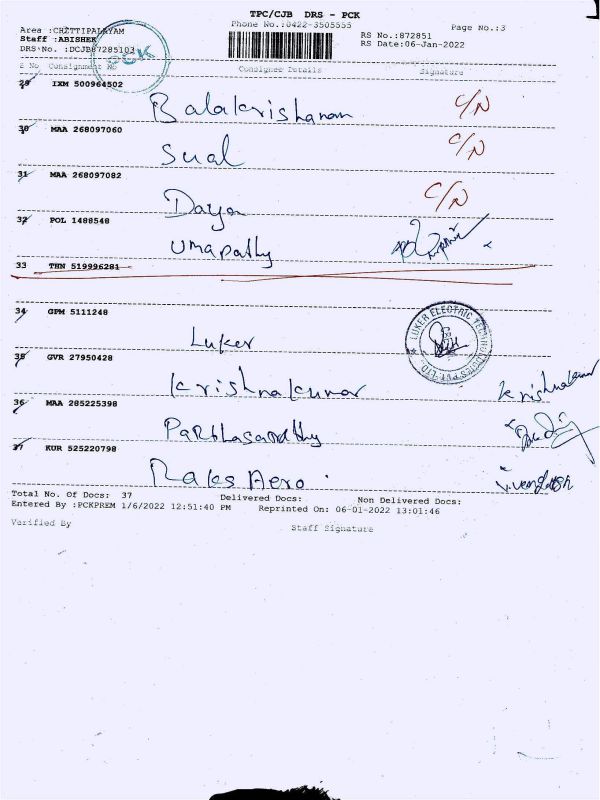 TPC/CJB DRS - PCK
Phone No.:0422-3505555
Page No.:3
Area :CHETTIPALAYAM
Staff :ABISHEK
DRS No. :DCJB87285103
PCK
RS No.:872851
RS Date:06-Jan-2022
S No Consignment No Consignee Details Signature
29 IXM 500964502
Balakrishanan C/N
30 MAA 268097060
Sual C/N
31 MAA 268097082
Daya C/N
32 POL 1488548
Umapathy
33 THN 519996281
34 GPM 5111248
Luker
LUKER ELECTRIC TECHNOLOGIES PVT. LTD.
35 GVR 27950428
Krishnakumar Krishnakumar
36 MAA 285225398
Parthasarathy
37 KUR 525220798
Raks Aero. V. Venglatesh
Total No. Of Docs: 37 Delivered Docs: Non Delivered Docs:
Entered By :PCKPREM 1/6/2022 12:51:40 PM Reprinted On: 06-01-2022 13:01:46
Verified By Staff Signature